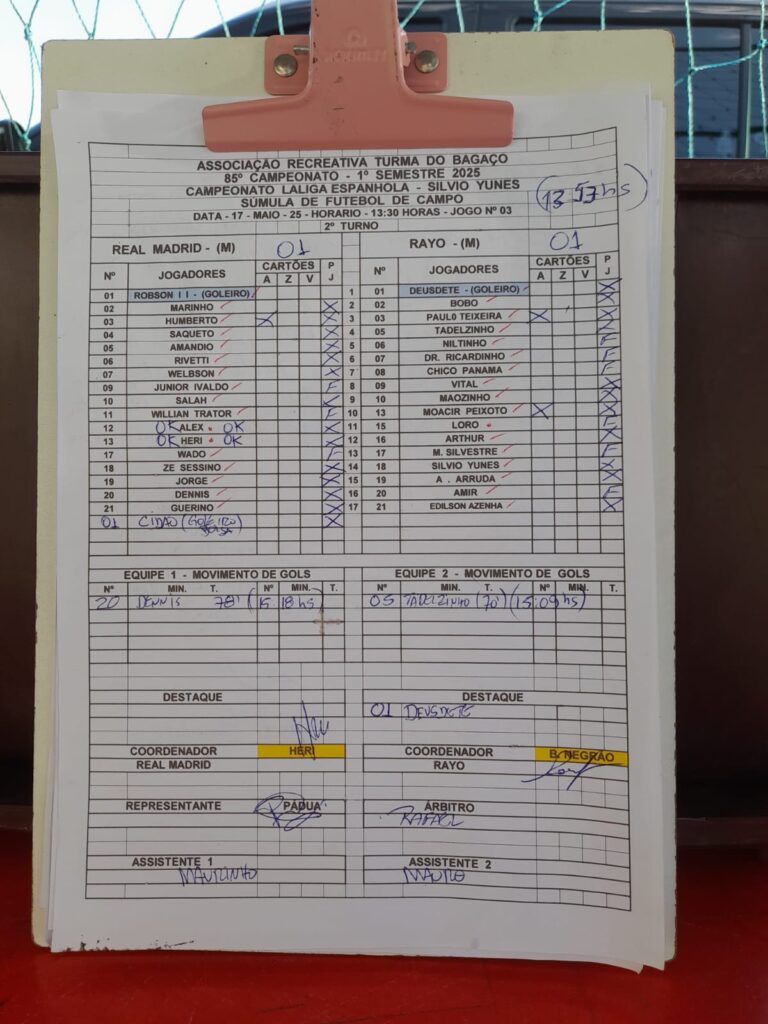 ASSOCIAÇÃO RECREATIVA TURMA DO BAGAÇO
85º CAMPEONATO - 1º SEMESTRE 2025
CAMPEONATO LALIGA ESPANHOLA - SILVIO YUNES
SÚMULA DE FUTEBOL DE CAMPO
13 57 hs
DATA - 17 - MAIO - 25 - HORARIO - 13:30 HORAS - JOGO Nº 03
2º TURNO
REAL MADRID - (M) 01 RAYO - (M) 01
Nº JOGADORES CARTÕES P J Nº JOGADORES CARTÕES P J
A Z V A Z V
01 ROBSON I I - (GOLEIRO) 1 01 DEUSDETE - (GOLEIRO) X
02 MARINHO X 2 02 BOBO X
03 HUMBERTO X X 3 03 PAULO TEIXEIRA X X
04 SAQUETO X 4 05 TADELZINHO X
05 AMANDIO X 5 06 NILTINHO F
06 RIVETTI X 6 07 DR. RICARDINHO F
07 WELBSON X 7 08 CHICO PANAMA F
09 JUNIOR IVALDO F 8 09 VITAL X
10 SALAH X 9 10 MAOZINHO X
11 WILLIAN TRATOR F 10 13 MOACIR PEIXOTO X X
12 OK ALEX OK X 11 15 LORO F
13 OK HERI OK X 12 16 ARTHUR X
17 WADO F 13 17 M. SILVESTRE F
18 ZE SESSINO X 14 18 SILVIO YUNES X
19 JORGE X 15 19 A . ARRUDA X
20 DENNIS X 16 20 AMIR F
21 GUERINO X 17 21 EDILSON AZENHA X
01 CIDÃO (GOLEIRO) X
EQUIPE 1 - MOVIMENTO DE GOLS EQUIPE 2 - MOVIMENTO DE GOLS
Nº MIN. T. Nº MIN. T. Nº MIN. T. Nº MIN. T.
20 DENNIS 78' (15:18 hs) 05 TADELZINHO (70') (15:09 hs)
DESTAQUE DESTAQUE
01 DEUSDETE
COORDENADOR HERI COORDENADOR B. NEGRÃO
REAL MADRID RAYO
REPRESENTANTE PÁDUA ÁRBITRO
RAFAEL
ASSISTENTE 1 ASSISTENTE 2
MAURINHO MAURO